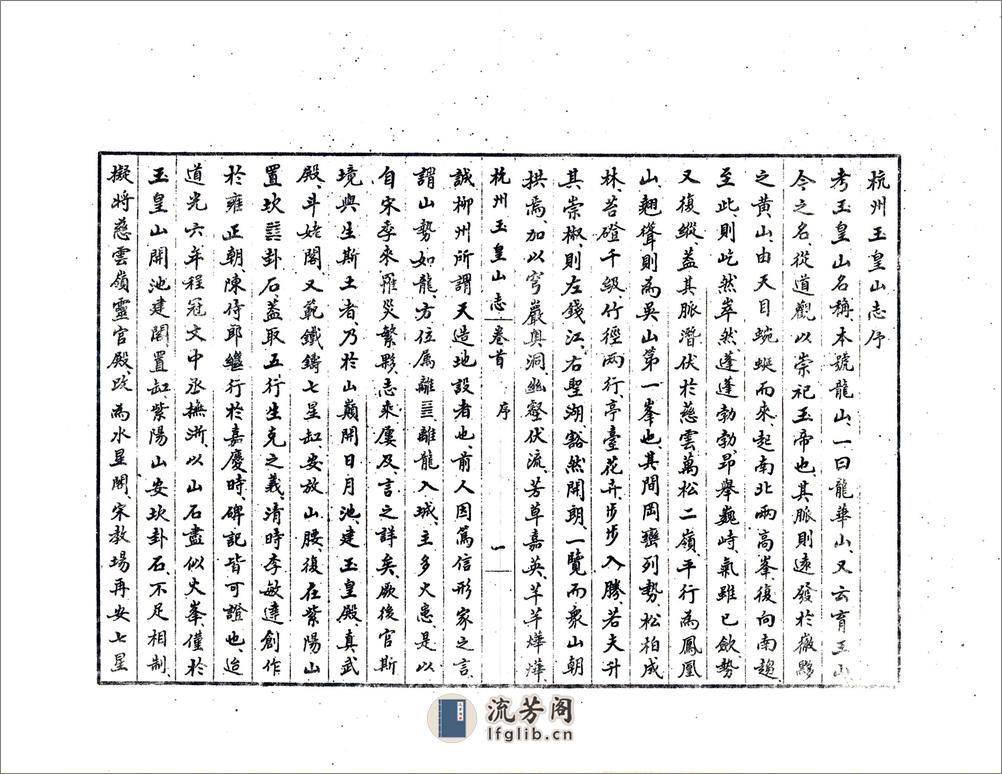 杭州玉皇山志序
考玉皇山名稱、本號龍山、一曰龍華山、又云育王山
今之名、從道觀以崇祀玉帝也、其脈則遠發於徽黟
之黃山、由天目蜿蜒而來、起南北兩高峯、復向南趨
至此、則屹然崒然、蓬蓬勃勃、昂舉巍峙、氣雖已歛、勢
又復縱、蓋其脈潛伏於慈雲萬松二嶺、平行為鳳凰
山、翹聳則為吳山第一峯也、其間岡巒列勢、松柏成
林、苔磴千級、竹徑兩行、亭臺花卉、步步入勝、若夫升
其崇椒、則左錢江、右聖湖、豁然開朗、一覽而衆山朝
拱焉、加以穹巖奧洞、幽壑伏流、芳草嘉英、芊芊燁燁、
杭州玉皇山志 卷首 序 一
誠柳州所謂天造地設者也、前人因篤信形家之言、
謂山勢如龍、方位属離☲離龍入城、主多火患、是以
自宋季來、罹災繁夥、志乘屢及、言之詳矣、厥後官斯
境與生斯土者、乃於山巔開日月池、建玉皇殿、真武
殿、斗姥閣、又範鐵鑄七星缸、安放山腰、復在紫陽山
置坎☵卦石、蓋取五行生克之義、清時李敏達創作
於雍正朝、陳侍郎繼行於嘉慶時、碑記皆可證也、迨
道光六年、程冠文中丞撫浙、以山石盡似火峯、僅於
玉皇山開池建閣置缸、紫陽山安坎卦石、不足相制、
擬將慈雲嶺靈官殿、改為水星閣、宋教場再安七星
流芳阁
lfglib.cn